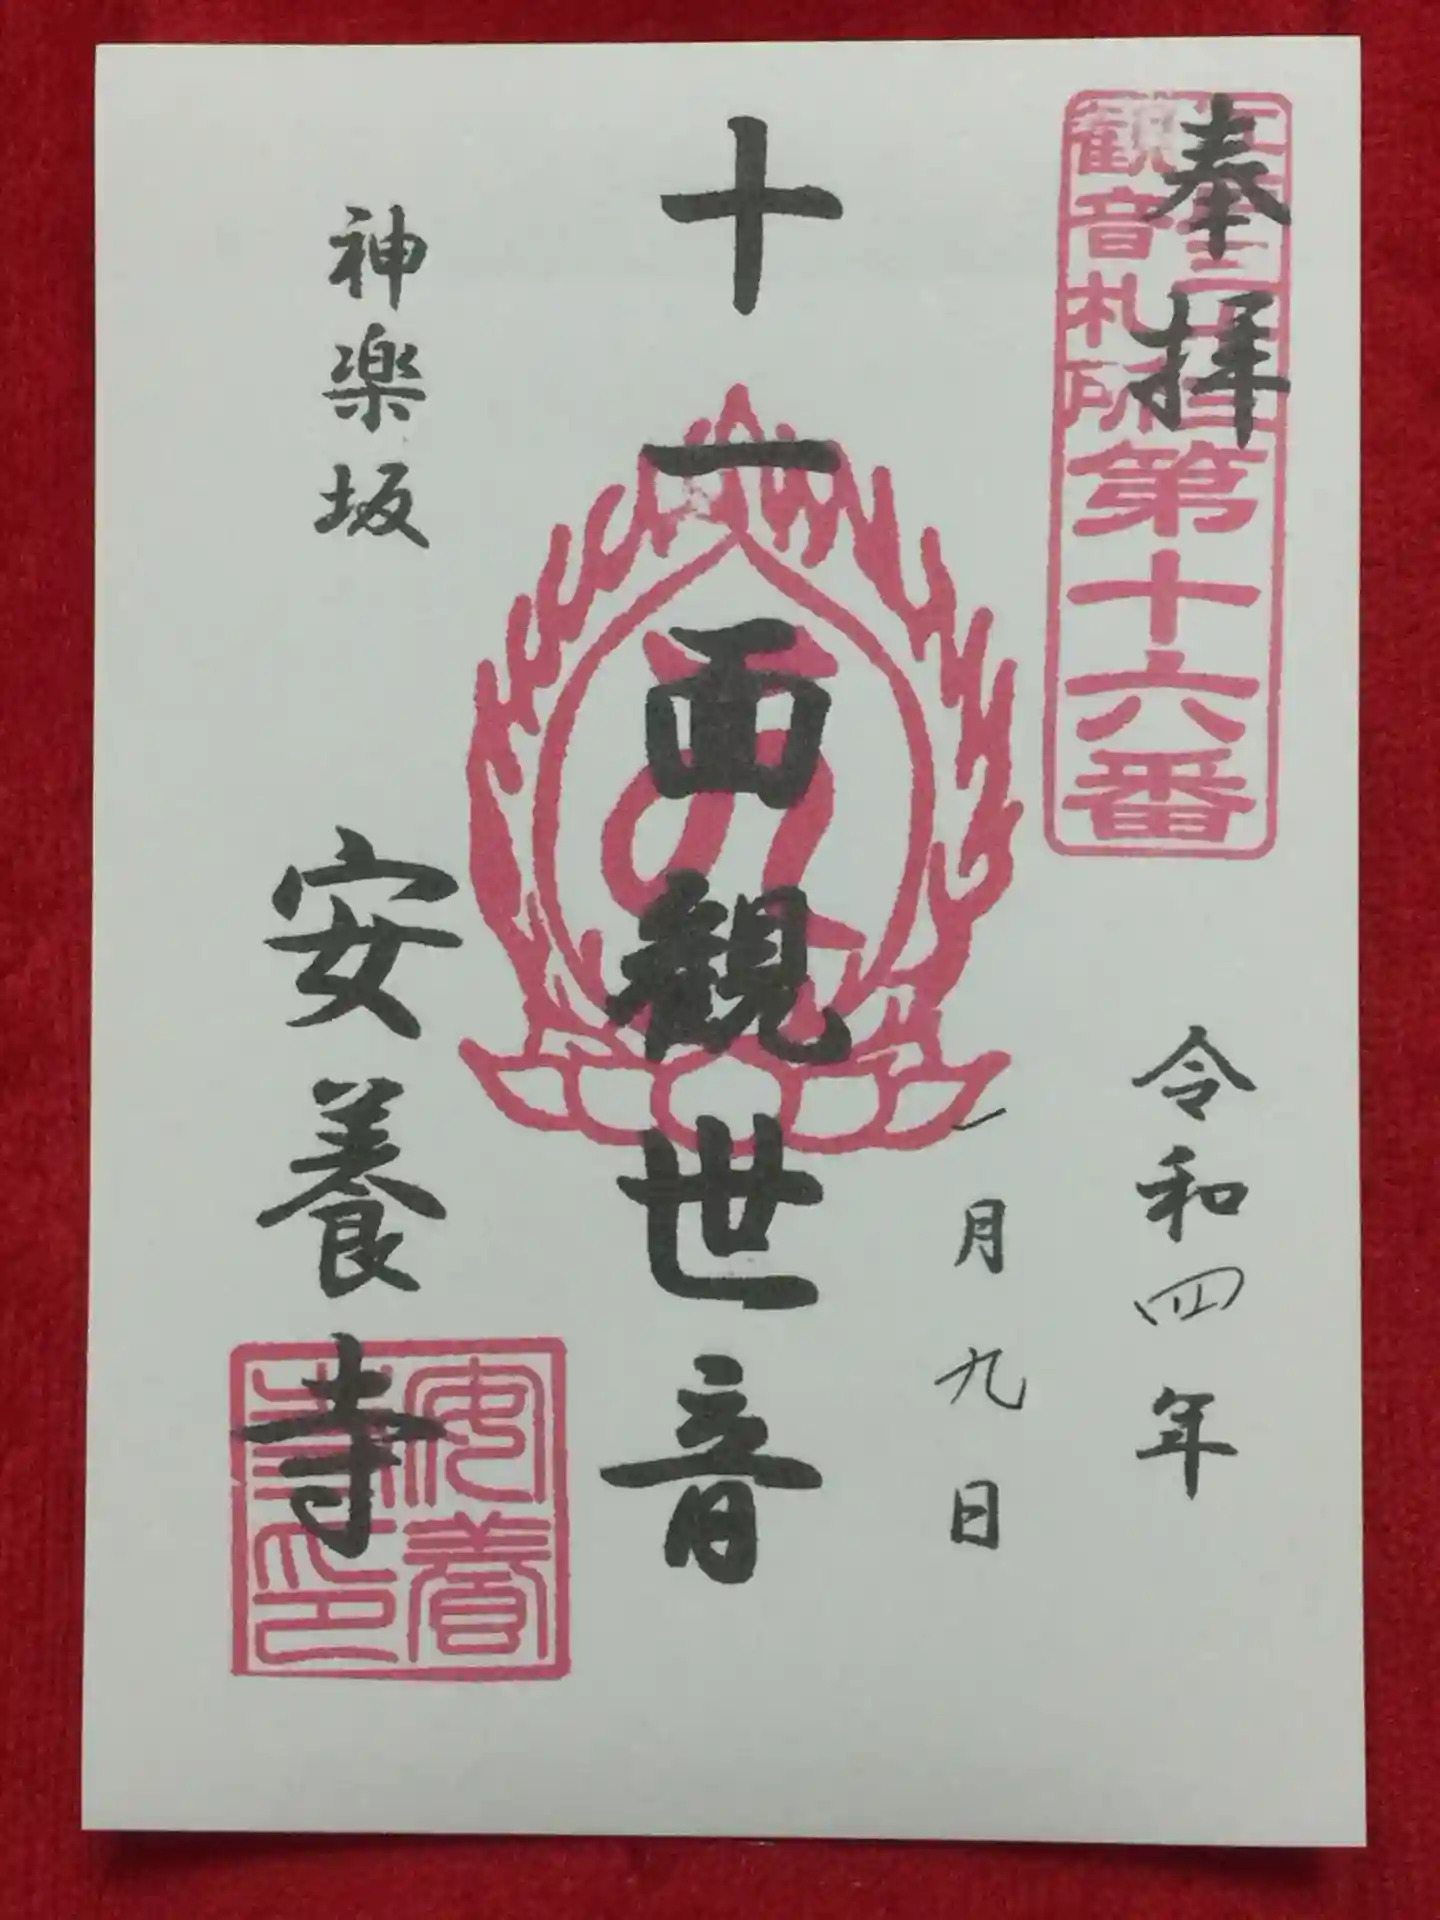 奉拝
江戸三十三
観音札所
第十六番
令和四年
一月九日
十一面観世音
神楽坂
安養寺
安養
寺印